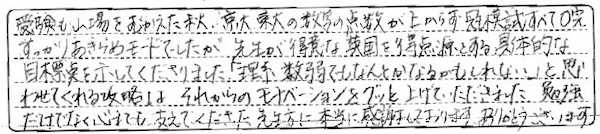 受験も山場をむかえた秋、京大東大の数学の点数が上がらず冠模試すべて0完
すっかりあきらめモードでしたが先生が得意な英国を得点源とする具体的な
目標点を示してくださりました。「理系数弱でもなんとかなるかもしれない…」と思
わせてくれる攻略は、それからのモチベーションをグッと上げていただきました。勉強
だけでなく心まで支えてくださった先生方に本当に感謝しております。ありがとうございます。